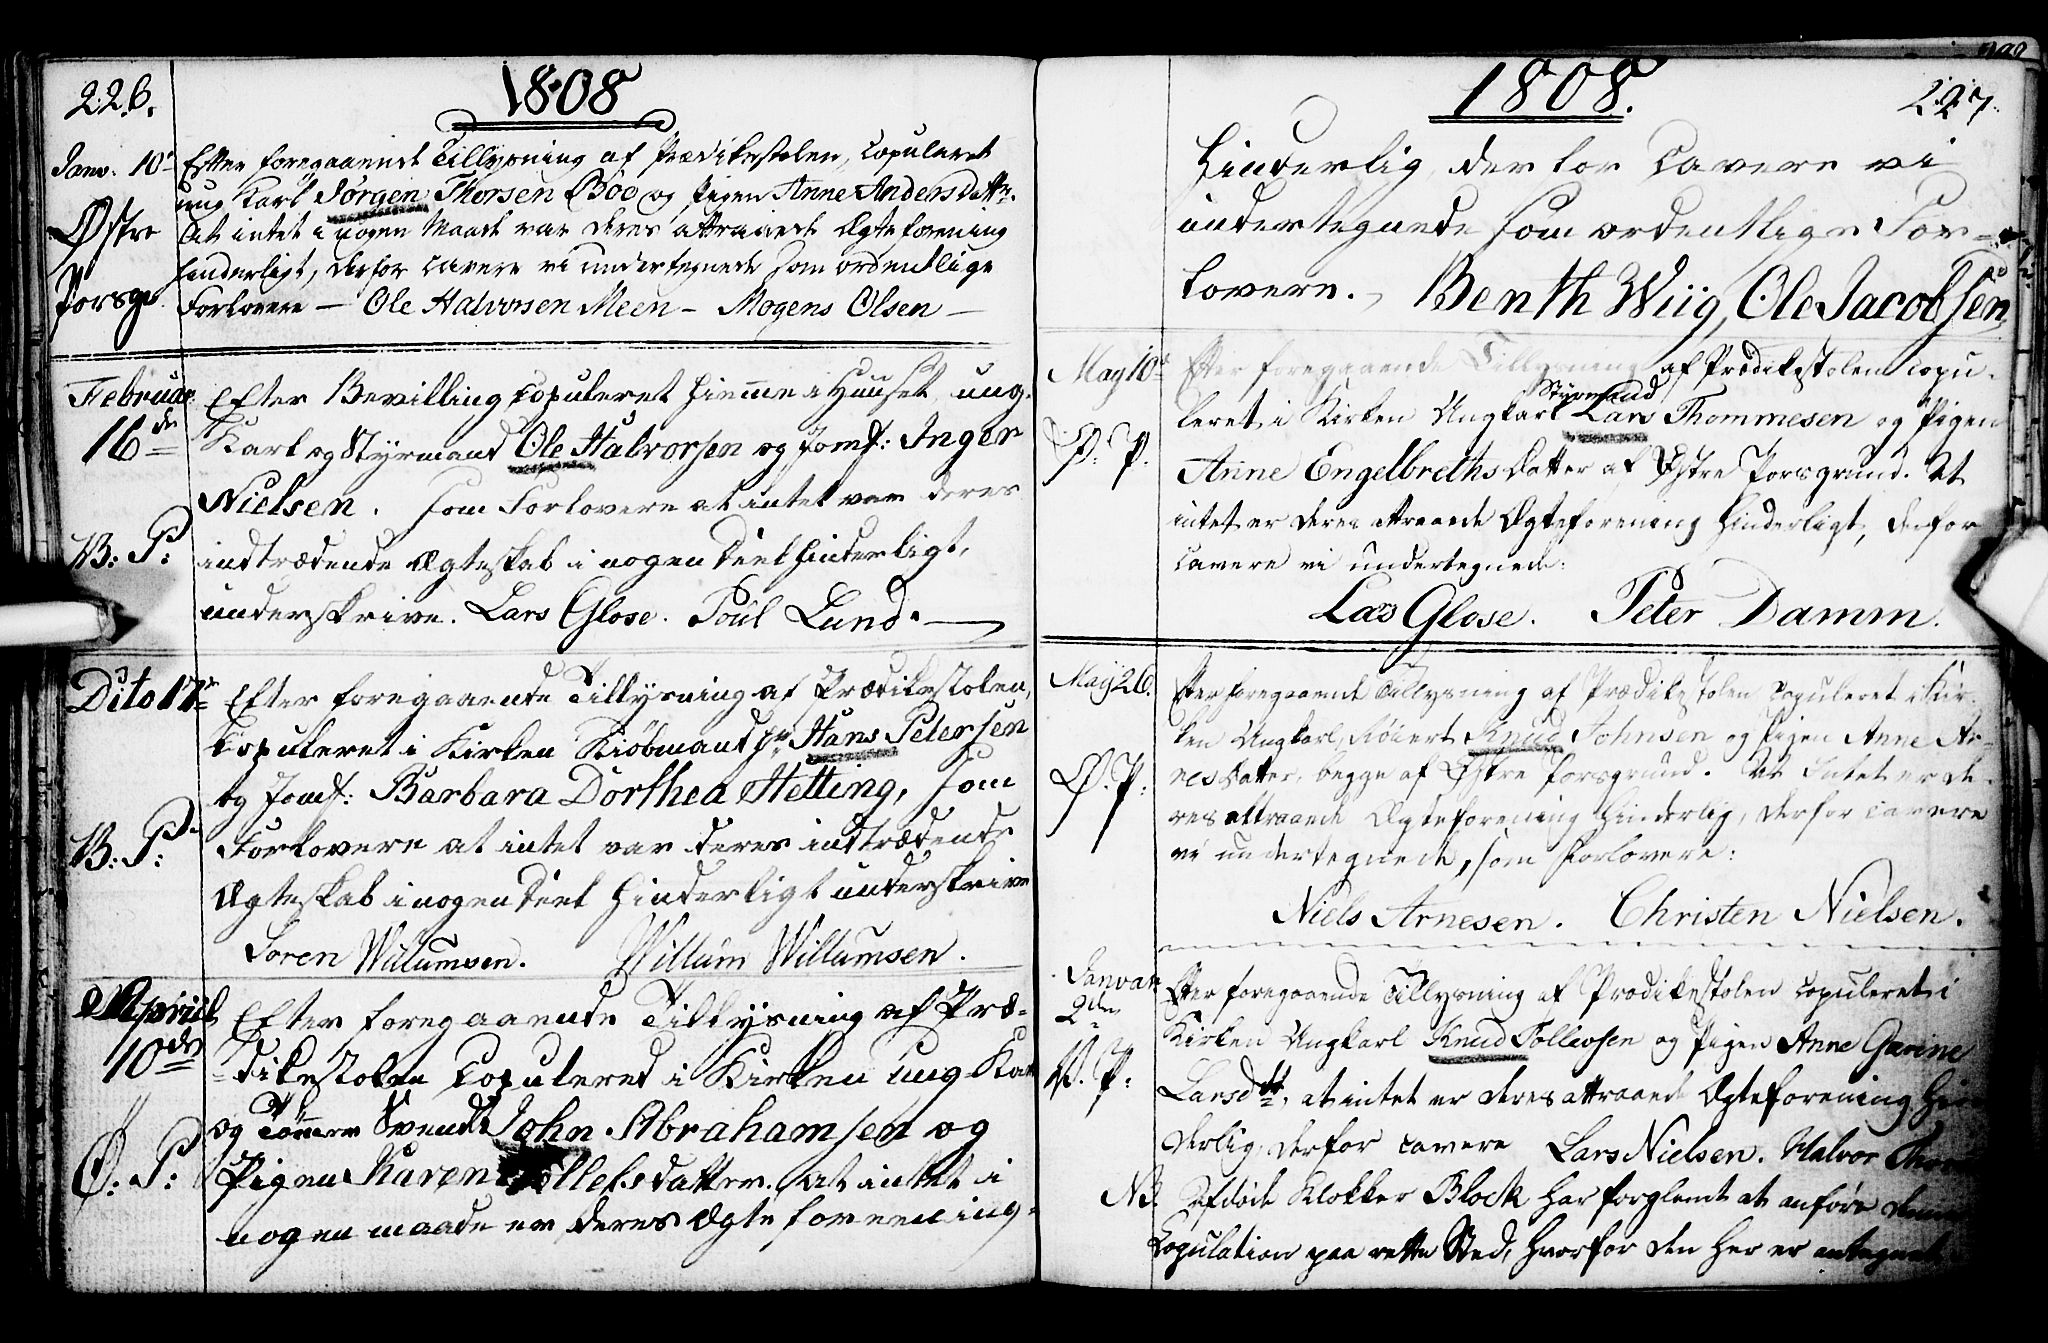 226.
1808
Janv. 10de Efter foregaaende Tillysning af Prædikestolen, Copuleret
ung Karl Jörgen Thorsen Böe og Pigen Anne Anders Dattr.
At intet i nogen Maade var deres attraaede Ægteforening
Østre Porsgr.
hinderligt, derfor cavere vi undertegnede som ordentlige
Forlovere — Ole Halvorsen Meen — Mogens Olsen —
Februar 16de Efter Bevilling Copuleret hiemme i Huuset ung-
Karl og Styrmand Ole Halvorsen og Jomf: Inger
Nielsen. som Forlovere at intet var deres
V: P: indtrædende Ægteskab i nogen Deel hinderligt,
underskrive. Lars Glose. Poul Lund. —
Dito 17de Efter foregaaende Tillysning af Prædikestolen,
Copuleret i Kirken Kiöbmand Hr Hans Petersen
og Jomf: Barbara Dorthea Hetting, som
V: P: Forlovere at intet var deres indtrædende
Ægteskab i nogen Deel hinderligt underskrive
Soren Willumsen. Willum Willumsen.
Apriil 10de Efter foregaaende Tillysning af Præ-
dikestolen Copuleret i Kirken Ung Karl
og Tömmer Svend John Abrahamsen og
Ø: P: Pigen Karen Tollefsdatter. At intet i
nogen maade er deres Ægteforeening-
1808.
227.
hinderlig, derfor Cavere vi
undertegnede som ordentlige For-
lovere. Benth Wiig, Ole Jacobsen
May 10de Efter foregaaende Tillysning af Prædikestolen copu-
Styrmand
leret i Kirken Ungkarl Lars Thommesen og Pigen
Ø: P. Anne Engelbreths Datter af Østre Porsgrund. At
intet er deres attraaede Ægteforening hinderligt, derfor
cavere vi undertegnede:
Lars Glose. Peter Damm.
May 26. Efter foregaaende Tillysning af Prædikestolen Copuleret i Kir-
ken Ungkarl, Knud Johnsen og Pigen Anne Ar-
Ø. P: nesdatter, begge af Østre Porsgrund. At Intet er de-
res attraaede Ægteforening hinderlig, derfor cavere
vi undertegnede, som Forlovere:
Niels Arnesen. Christen Nielsen.
Januar 2den Efter foregaaende Tillysning af Prædikestolen copuleret i
Kirken Ungkarl Knud Tollevsen og Pigen Anne Gurine
V. P: Larsdtr, at intet er deres attraaede Ægteforening hin
derlig, derfor cavere Lars Nielsen. Halvor
NB. Afdöde Klokker Block har forglemt at anföre denne
Copulation paa rette Sted, hvorfor den her er antegnet